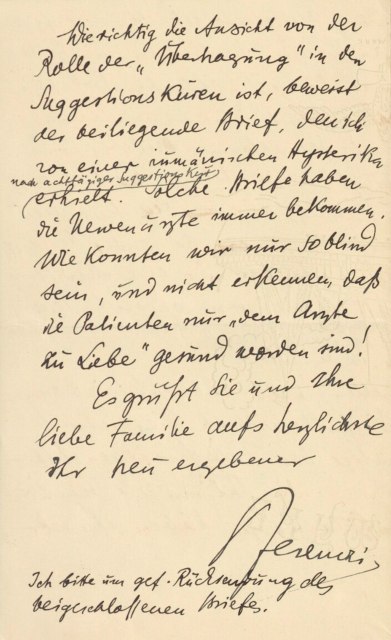 Wie richtig die Ansicht von der
Rolle der „Übertragung" in den
Suggestionskuren ist, beweist
der beiliegende Brief, den ich
von einer rumänischen Hysterika
nach achttägiger Suggestions Kur
erhielt. Solche Briefe haben
die Nervenärzte immer bekommen.
Wie konnten wir nur so blind
sein, und nicht erkennen, daß
die Patienten nur „dem Arzte
zu Liebe" gesund worden sind!
Es grüßt Sie und Ihre
liebe Familie aufs herzlichste
Ihr treu ergebener
Ferenczi
Ich bitte um gef. Rücksendung des
beigeschlossenen Briefes.